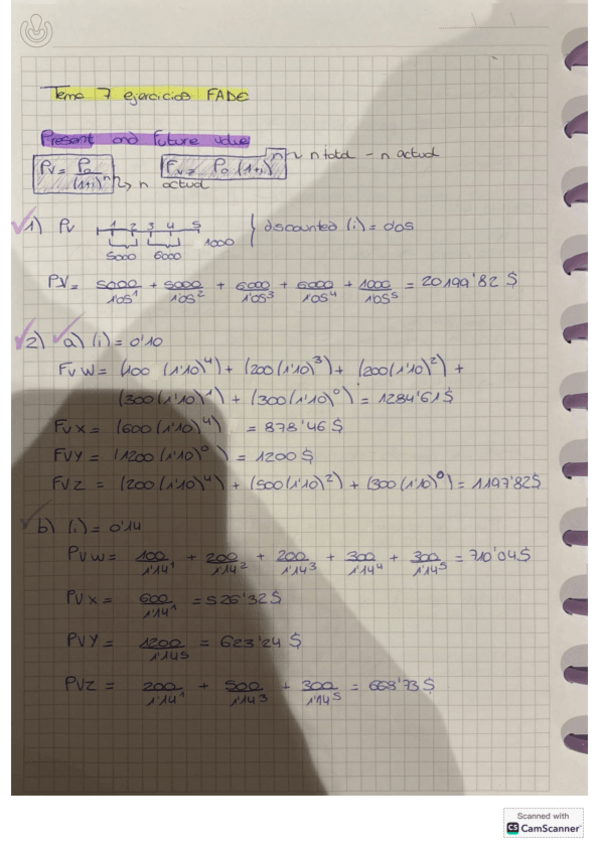 Tema 7 ejercicios FADE
Present and Future value
PV = P₀/(1+i)ⁿ → n actual
FV = P₀ (1+i)ⁿ → n total - n actual
1) PV 1 2 3 4 5 } discounted (i) = 0'05
5000 6000 1000
PV = 5000/1'05¹ + 5000/1'05² + 6000/1'05³ + 6000/1'05⁴ + 1000/1'05⁵ = 20199'82 $
2) a) (i) = 0'10
FV W = (100 (1'10)⁴) + (200 (1'10)³) + (200 (1'10)²) +
(300 (1'10)¹) + (300 (1'10)⁰) = 1284'61 $
FV X = (600 (1'10)⁴) = 878'46 $
FV Y = (1200 (1'10)⁰) = 1200 $
FV Z = (200 (1'10)⁴) + (500 (1'10)²) + (300 (1'10)⁰) = 1197'82 $
b) (i) = 0'14
PV W = 100/1'14¹ + 200/1'14² + 200/1'14³ + 300/1'14⁴ + 300/1'14⁵ = 710'04 $
PV X = 600/1'14¹ = 526'32 $
PV Y = 1200/1'14⁵ = 623'24 $
PV Z = 200/1'14¹ + 500/1'14³ + 300/1'14⁵ = 668'73 $
Scanned with
CS CamScanner